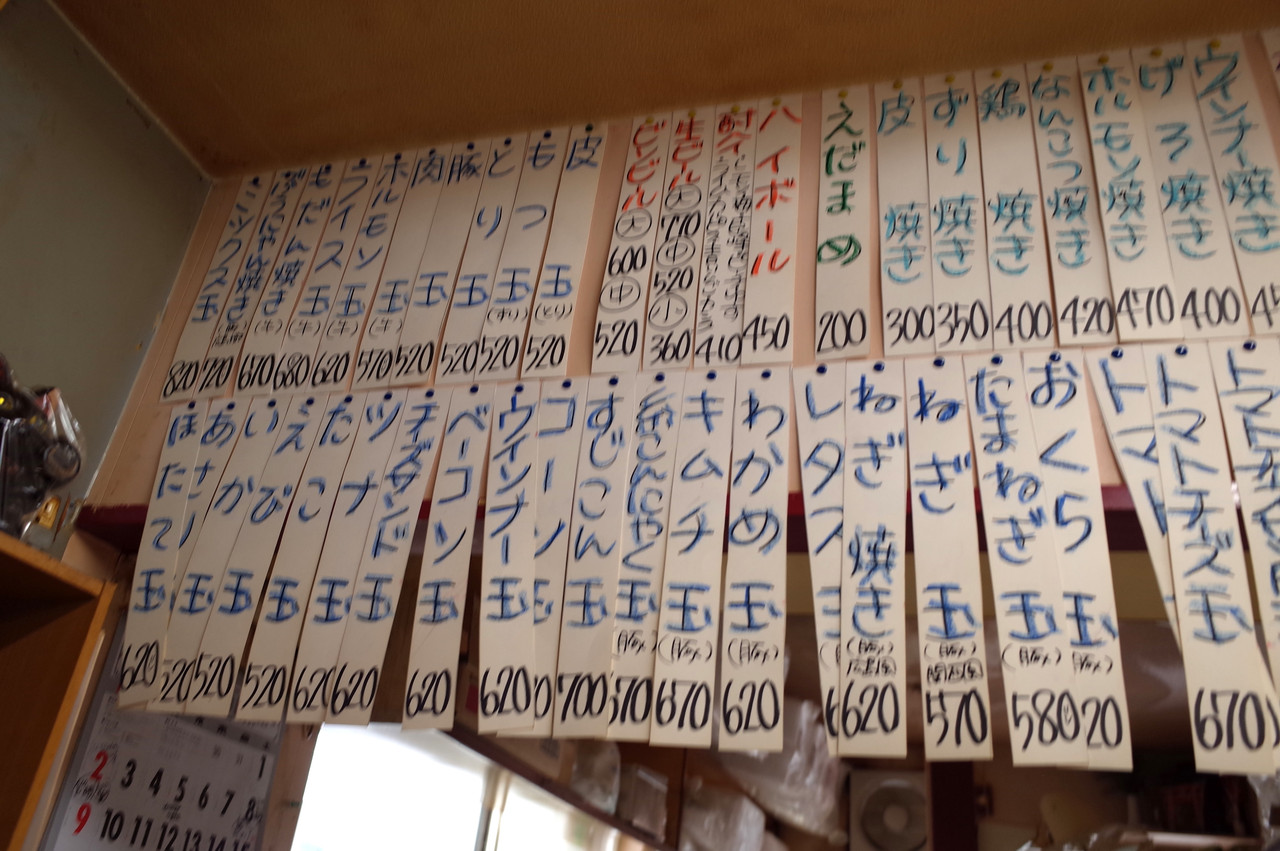 ウインナー焼き
げそ焼き 400
ホルモン焼き 470
なんこつ焼き 420
鶏 焼き 400
ずり焼き 350
皮 焼き 300
えだまめ 200
ハイボール 450
酎ハイ 410
生ビール 大 770 中 520 小 360
ビンビール 大 600 中 520
皮
もつ玉 (とり) 520
とり玉 (ずり) 520
豚玉 520
肉玉 520
ホルモン玉 (牛) 570
ライス玉 (牛) 620
もだん 680
焼き 670
720
ミックス玉 820
トマト
トマトチーズ玉 670
トマト
おくら玉 (豚入) 20
たまねぎ玉 (豚入) 580
ねぎ玉 (豚入) 関西風 570
ねぎ焼き (豚入) 広島風 620
レタス
わかめ玉 (豚入) 620
キムチ玉 (豚入) 670
こんにゃく玉 (豚入) 570
すじこん玉 700
コーン
ウインナー玉 620
ベーコン玉 620
チーズ
ツナ玉 620
たこ玉 620
えび玉 520
いか玉 520
あさり 520
ほたて玉 620
1
2 3 4 5 6 7 8
9 10 11 12 13 14 15